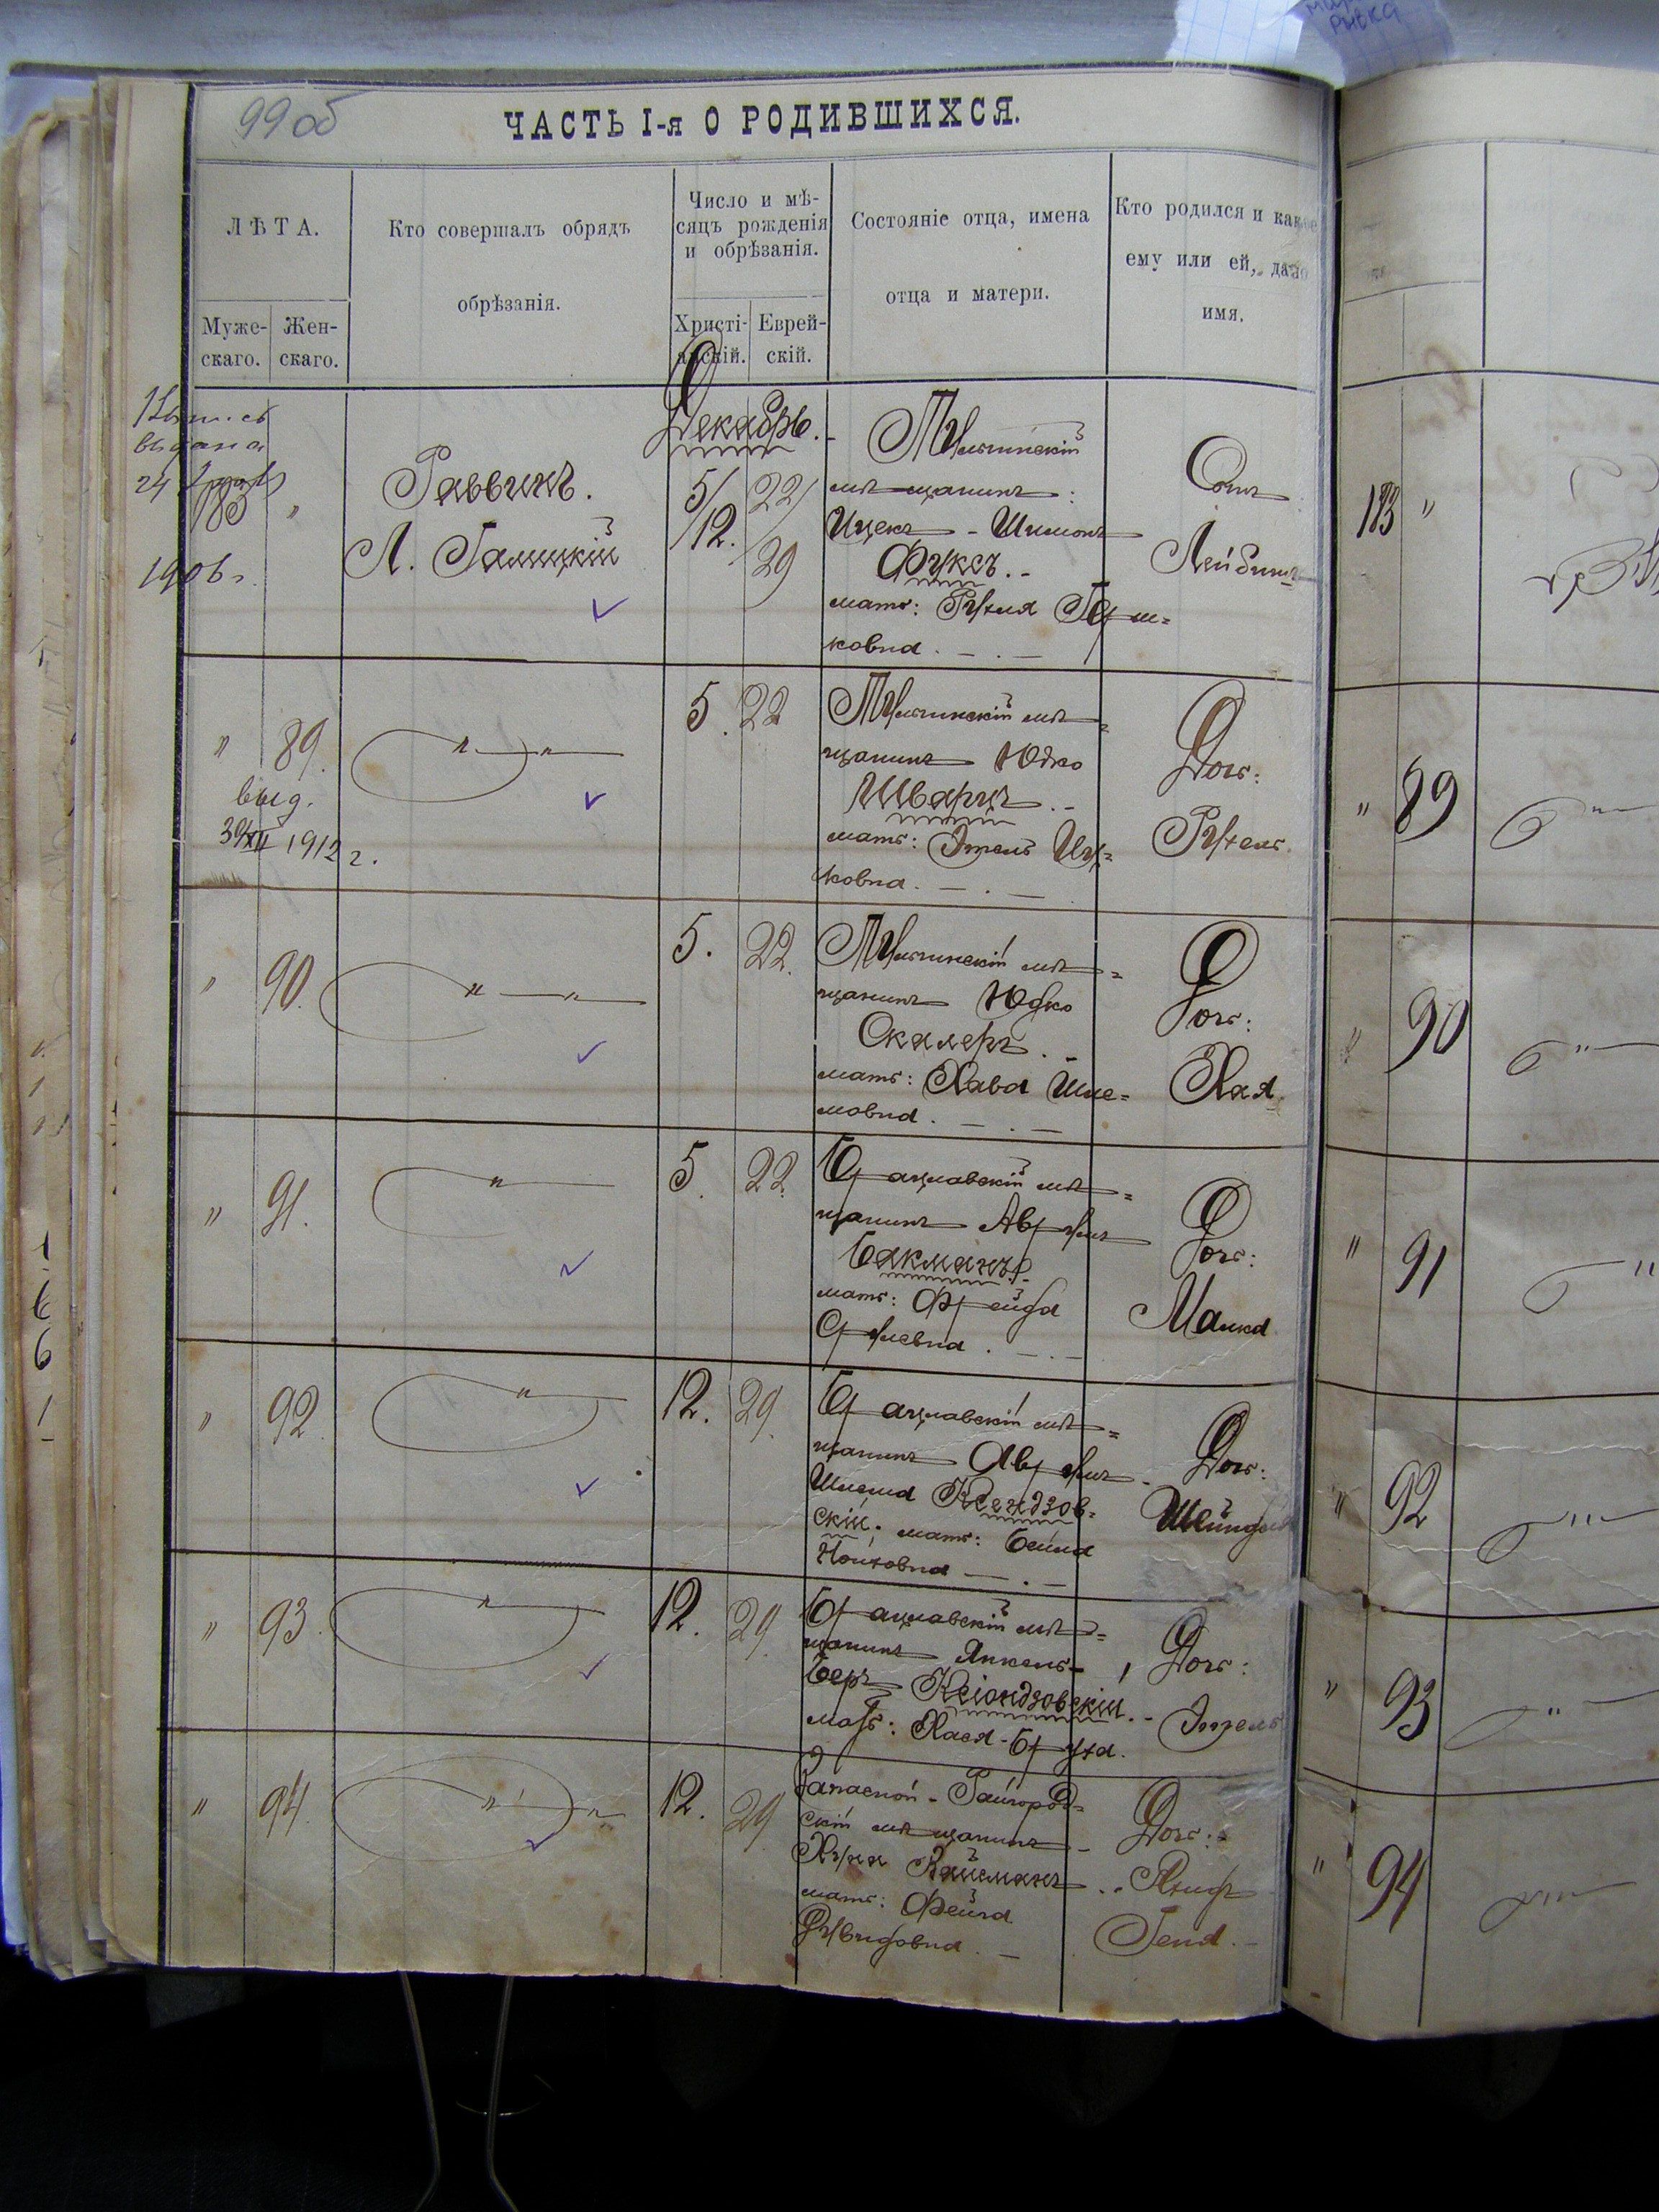 99 об
ЧАСТЬ I-я О РОДИВШИХСЯ.
ЛѢТА.
Муже-
скаго.
Жен-
скаго.
Кто совершалъ обрядъ
обрѣзанія.
Число и мѣ-
сяцъ рожденія
и обрѣзанія.
Христі-
анскій.
Еврей-
скій.
Состояніе отца, имена
отца и матери.
Кто родился и какое
ему или ей, дано
имя.
Декабрь.
выдана
24
1906 г.
183 "
Раввинъ.
Л. Галицкій
5/12. 22/29
Тульчинскій
мѣщанинъ:
Ицекъ - Шимонъ
Фуксъ.-
мать: Рухля Герш=
ковна. - . -
Сынъ
Лейбишъ
" 89.
выд.
30/XII 1912 г.
" "
5. 22
Тульчинскій мѣ=
щанинъ Юдко
Шварцъ.-
мать: Этель Иц=
ковна. - . -
Дочь:
Рухель.
" 90.
" "
5. 22.
Тульчинскій мѣ=
щанинъ Юдко
Скалеръ.-
мать: Хава Шле=
мовна. - . -
Дочь:
Хая.
" 91.
"
5. 22.
Брацлавскій мѣ=
щанинъ Аврумъ
Бакманъ.-
мать: Фрейда
Срулевна. - . -
Дочь:
Малка
" 92.
"
12. 29.
Брацлавскій мѣ=
щанинъ Аврумъ-
Шлема Ксендзов=
скій. мать: Бейла
Нойховна - . -
Дочь:
" 93.
"
12. 29.
Брацлавскій мѣ=
щанинъ Янкель-
Беръ Ксіондзовскій.-
мать: Хася-Бруха.
Дочь:
Этель
" 94.
" "
12. 29.
Райгород=
скій мѣщанинъ-
Вайсманъ
мать: Фейга
Дочь:
Геня.-
183 "
" 89
" 90
" 91
" 92
" 93
" 94